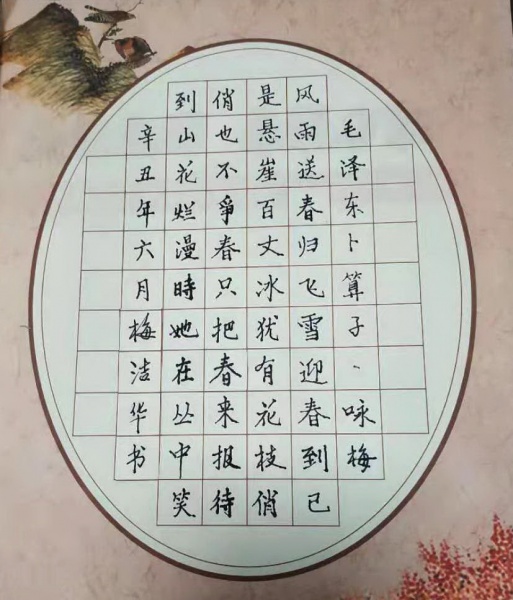 毛泽东卜算子·咏梅
风雨送春归飞雪迎春到已
是悬崖百丈冰犹有花枝俏
俏也不爭春只把春来报待
到山花烂漫時她在丛中笑
辛丑年六月梅洁华书